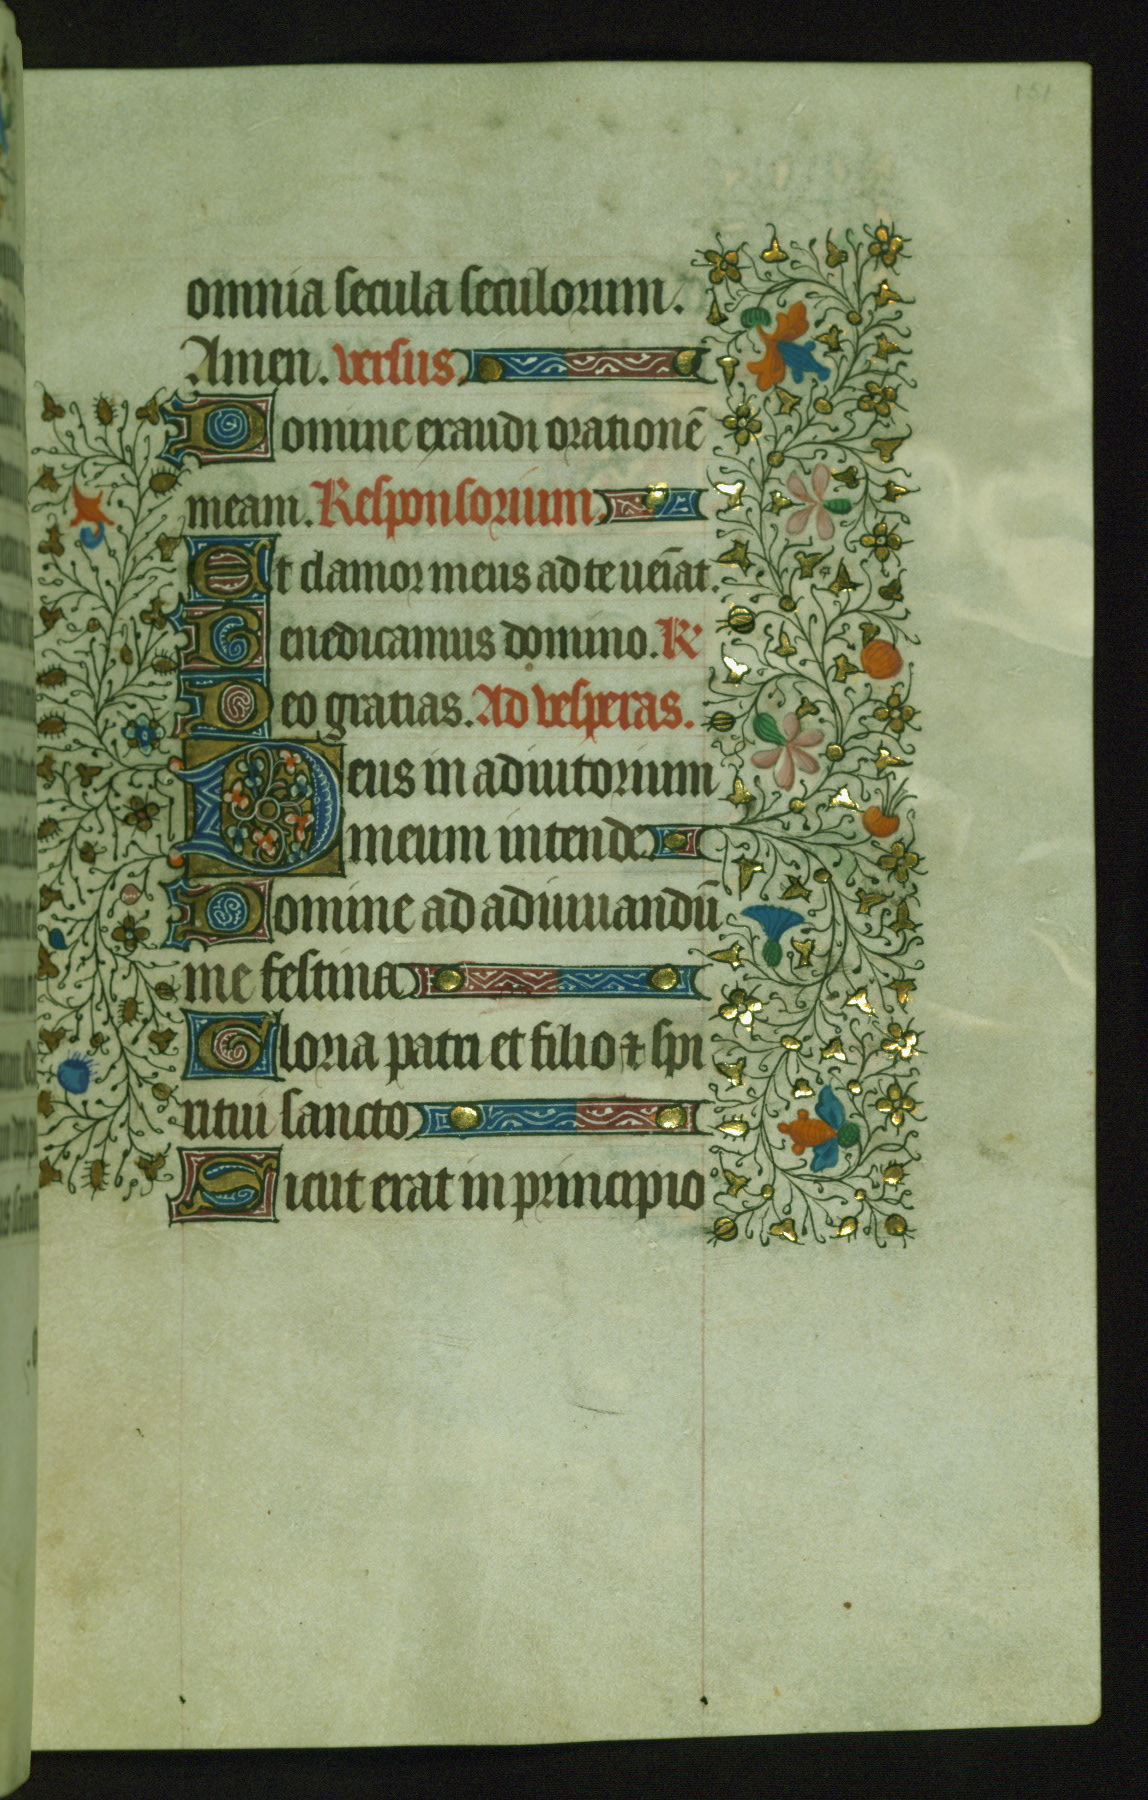 151
omnia secula seculorum.
Amen. versus
Domine exaudi orationē
meam. Responsorium.
Et clamor meus ad te ueīat.
Benedicamus domino. R
Deo gratias. Ad vesperas.
Deus in adiutorium
meum intende
Domine ad adiuuandū
me festina
Gloria patri et filio ⁊ spi
ritui sancto
Sicut erat in principio